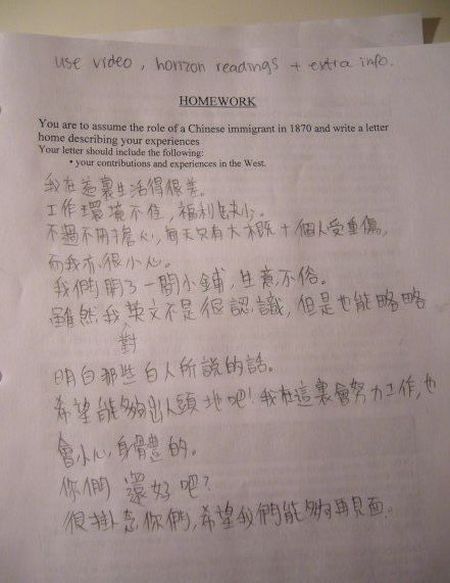 use video, horizon readings + extra info.
HOMEWORK
You are to assume the role of a Chinese immigrant in 1870 and write a letter
home describing your experiences
Your letter should include the following:
• your contributions and experiences in the West.
我在這裏生活得很差。
工作環境不佳,福利缺少。
不過不用擔心,每天只有大概十個人受重傷,
而我亦很小心。
我們開了一間小鋪,生意不俗。
雖然我對英文不是很認識,但是也能略略
明白那些白人所說的話。
希望能夠出人頭地吧!我在這裏會努力工作,也
會小心身體的。
你們還好吧?
很掛念你們,希望我們能夠再見面。